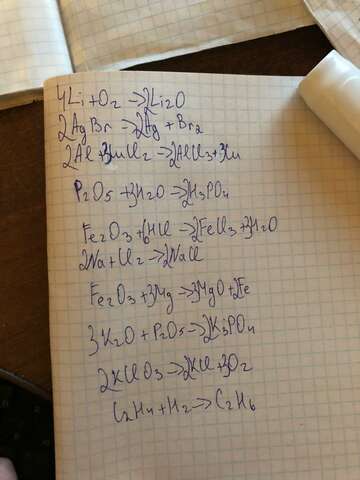 4Li+O2→2Li2O
2AgBr→2Ag+Br2
2Al+3CuCl2→2AlCl3+3Cu
P2O5+3H2O→2H3PO4
Fe2O3+6HCl→2FeCl3+3H2O
2Na+Cl2→2NaCl
Fe2O3+3Mg→3MgO+2Fe
3K2O+P2O5→2K3PO4
2KClO3→2KCl+3O2
C2H4+H2→C2H6